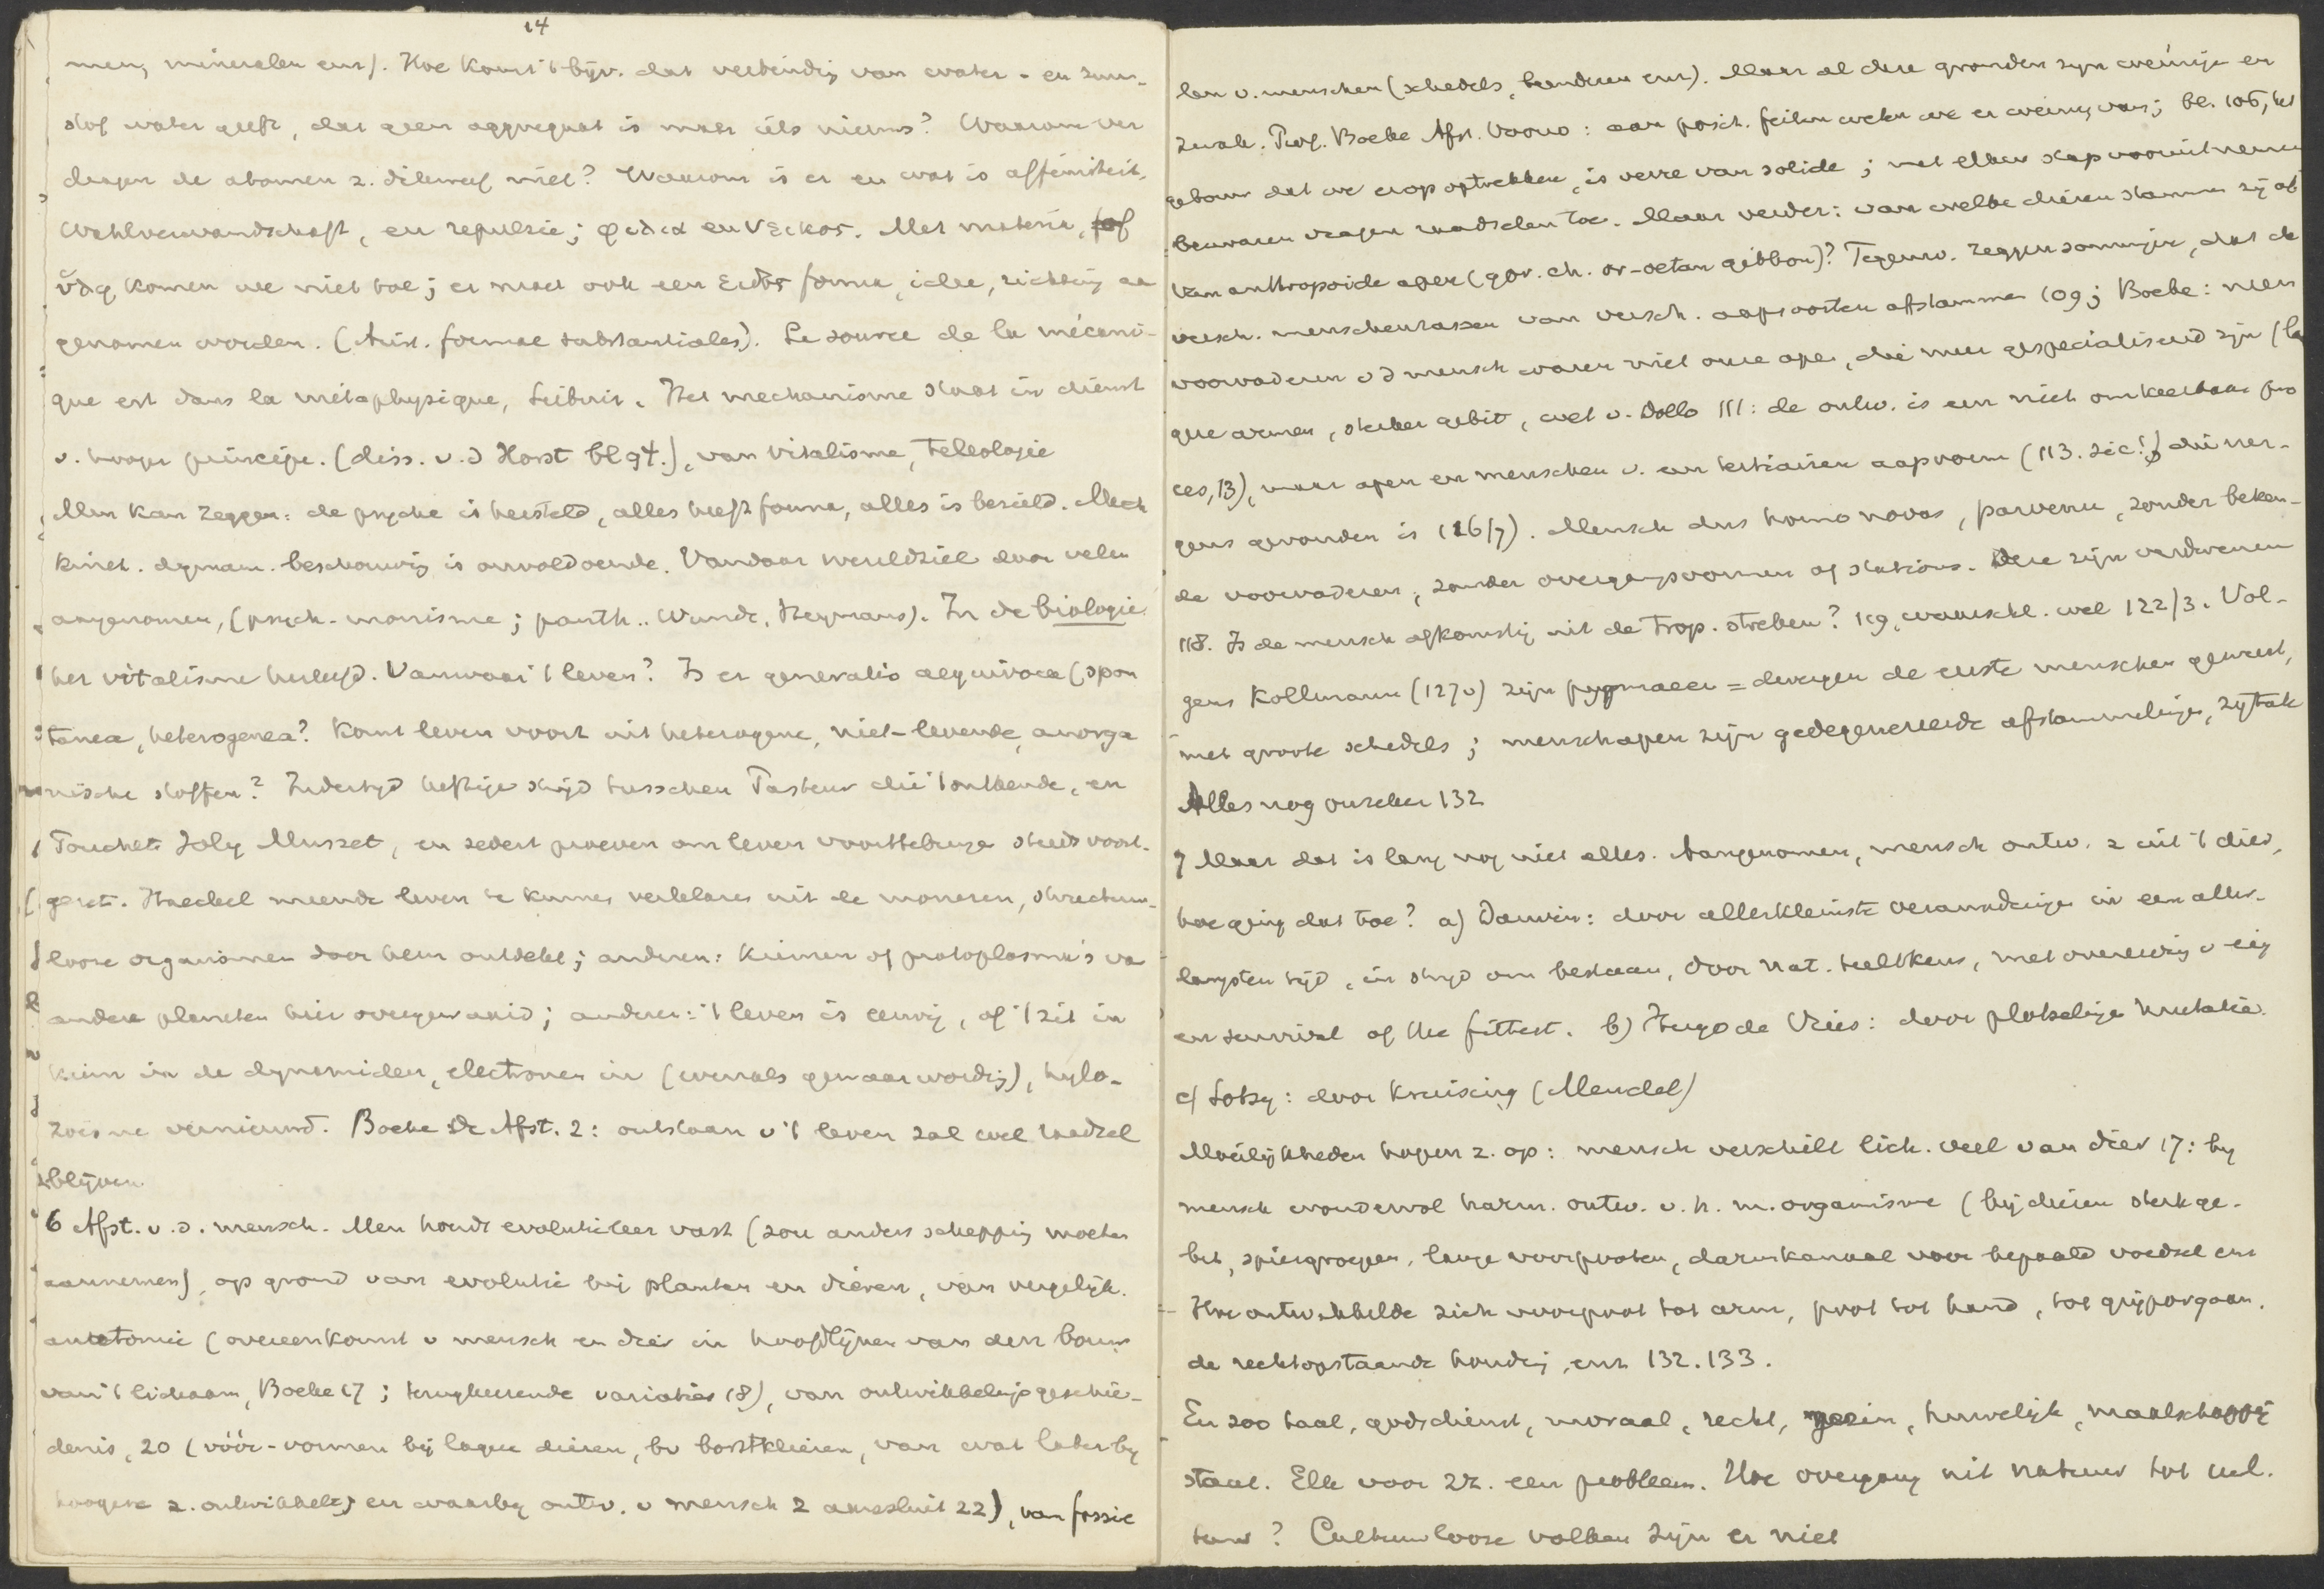 14
men, mineralen enz). Hoe komt 't bijv. dat verbinding van water- en zuur-
stof water geeft, dat geen aggregaat is maar iets nieuws? Waarom ver
dragen de atomen z. dikwerf niet? Waarom is er en wat is affiniteit,
Wahlverwandschaft, en repulsie; φιλια en νεικος. Met materie, stof
ὕλη komen we niet toe; er moet ook een εἶδος forma, idee, richting aan
genomen worden. (Arist. formae substantiales). La source de la mécani-
que est dans la métaphysique, Leibniz. Het mechanisme staat in dienst
v. hooger principe. (diss. v.d Horst bl 94.), van vitalisme, teleologie
Men kan zeggen: de psyche is hersteld, alles heeft forma, alles is bezield. Mech
kinet. dynam. beschouwing is onvoldoende. Vandaar wereldziel door velen
aangenomen, (psych-monisme; panth.. Wundt, Heymans). In de biologie
het vitalisme herleefd. Vanwaar 't leven? Is er generatio aequivoca (spon
tanea, heterogenea? Komt leven voort uit heterogene, niet-levende, anorga
nische stoffen? Indertijd heftige strijd tusschen Pasteur die 't ontkende, en
Pouchet Joly Musset, en sedert proeven om leven voorttebrengen steeds voort-
gezet. Haeckel meende leven te kunnen verklaren uit de moneren, structuur-
looze organismen door hem ontdekt; anderen: kiemen of protoplasma's van
andere planeten hier overgewaaid; anderen: 't leven is eeuwig, of 't zit in
kiem in de dynamiden, electronen in (evenals gewaarwording), hylo-
zoisme vernieuwd. Boeke De Afst. 2: ontstaan v 't leven zal wel raadsel
blijven.
6 Afst. v.d. mensch. Men houdt evolutieleer vast (zou anders schepping moeten
aannemen), op grond van evolutie bij planten en dieren, van vergelijk.
anatomie (overeenkomst v mensch en dier in hoofdlijnen van den bouw
van 't lichaam, Boeke 17; terugkeerende variaties 18), van ontwikkelingsgeschie-
denis, 20 (vóór-vormen bij lagere dieren, bv borstklieren, van wat later bij
hoogere z. ontwikkelt, en waarbij ontw. v mensch z aansluit 22), van fossie
len v. menschen (schedels, beenderen enz). Maar al deze gronden zijn weinige en
zwak. Prof. Boeke Afst. Voorw: aan posit. feiten weten we er weinig van; bl. 106, het
gebouw dat we erop optrekken, is verre van solide; met elken stap vooruit nemen
bezwaren vragen raadselen toe. Maar verder: van welke dieren stammen zij af
Van anthropoide apen (gor. ch. or-oetan gibbon)? Tegenw. zeggen sommigen, dat de
versch. menschenrassen van versch. aapsoorten afstammen 109; Boeke: neen
voorvaderen v d mensch waren niet onze apen, die meer gespecialiseerd zijn (lan
gere armen, sterker gebit, wet v. Dollo 111: de ontw. is een niet omkeerbaar pro
ces, 13), maar apen en menschen v. een tertiairen aapvorm (113. sic!) die ner-
gens gevonden is (16/7). Mensch dus homo novus, parvenu, zonder beken-
de voorvaderen, zonder overgangsvormen of stations. Deze zijn verdwenen
118. Is de mensch afkomstig uit de trop. streken? 119, waarschl. wel 122/3. Vol-
gens Kollmann (127v) zijn pygmaeen = dwergen de eerste menschen geweest,
met groote schedels; menschapen zijn gedegenereerde afstammelingen, zijtak
Alles nog onzeker 132
7 Maar dat is lang nog niet alles. Aangenomen, mensch ontw. z uit 't dier,
hoe ging dat toe? a) Darwin: door allerkleinste veranderingen in een aller-
langsten tijd, in strijd om bestaan, door nat. teeltkeus, met overerving v eig
en survival of the fittest. b) Hugo de Vries: door plotselinge mutatie.
c) Lotsy: door kruising (Mendel)
Moeilijkheden hopen z. op: mensch verschilt lich. veel van dier 17: bij
mensch wondervol harm. ontw. v. h. m. organisme (bij dieren sterk ge-
bit, spiergroepen, lange voorpooten, darmkanaal voor bepaald voedsel enz
Hoe ontwikkelde zich voorpoot tot arm, poot tot hand, tot grijporgaan.
de rechtopstaande houding, enz 132.133.
En zoo taal, godsdienst, moraal, recht, gezin, huwelijk, maatschappij
staat. Elk voor zk. een probleem. Hoe overgang uit natuur tot cul.
tuur? Cultuurlooze volken zijn er niet